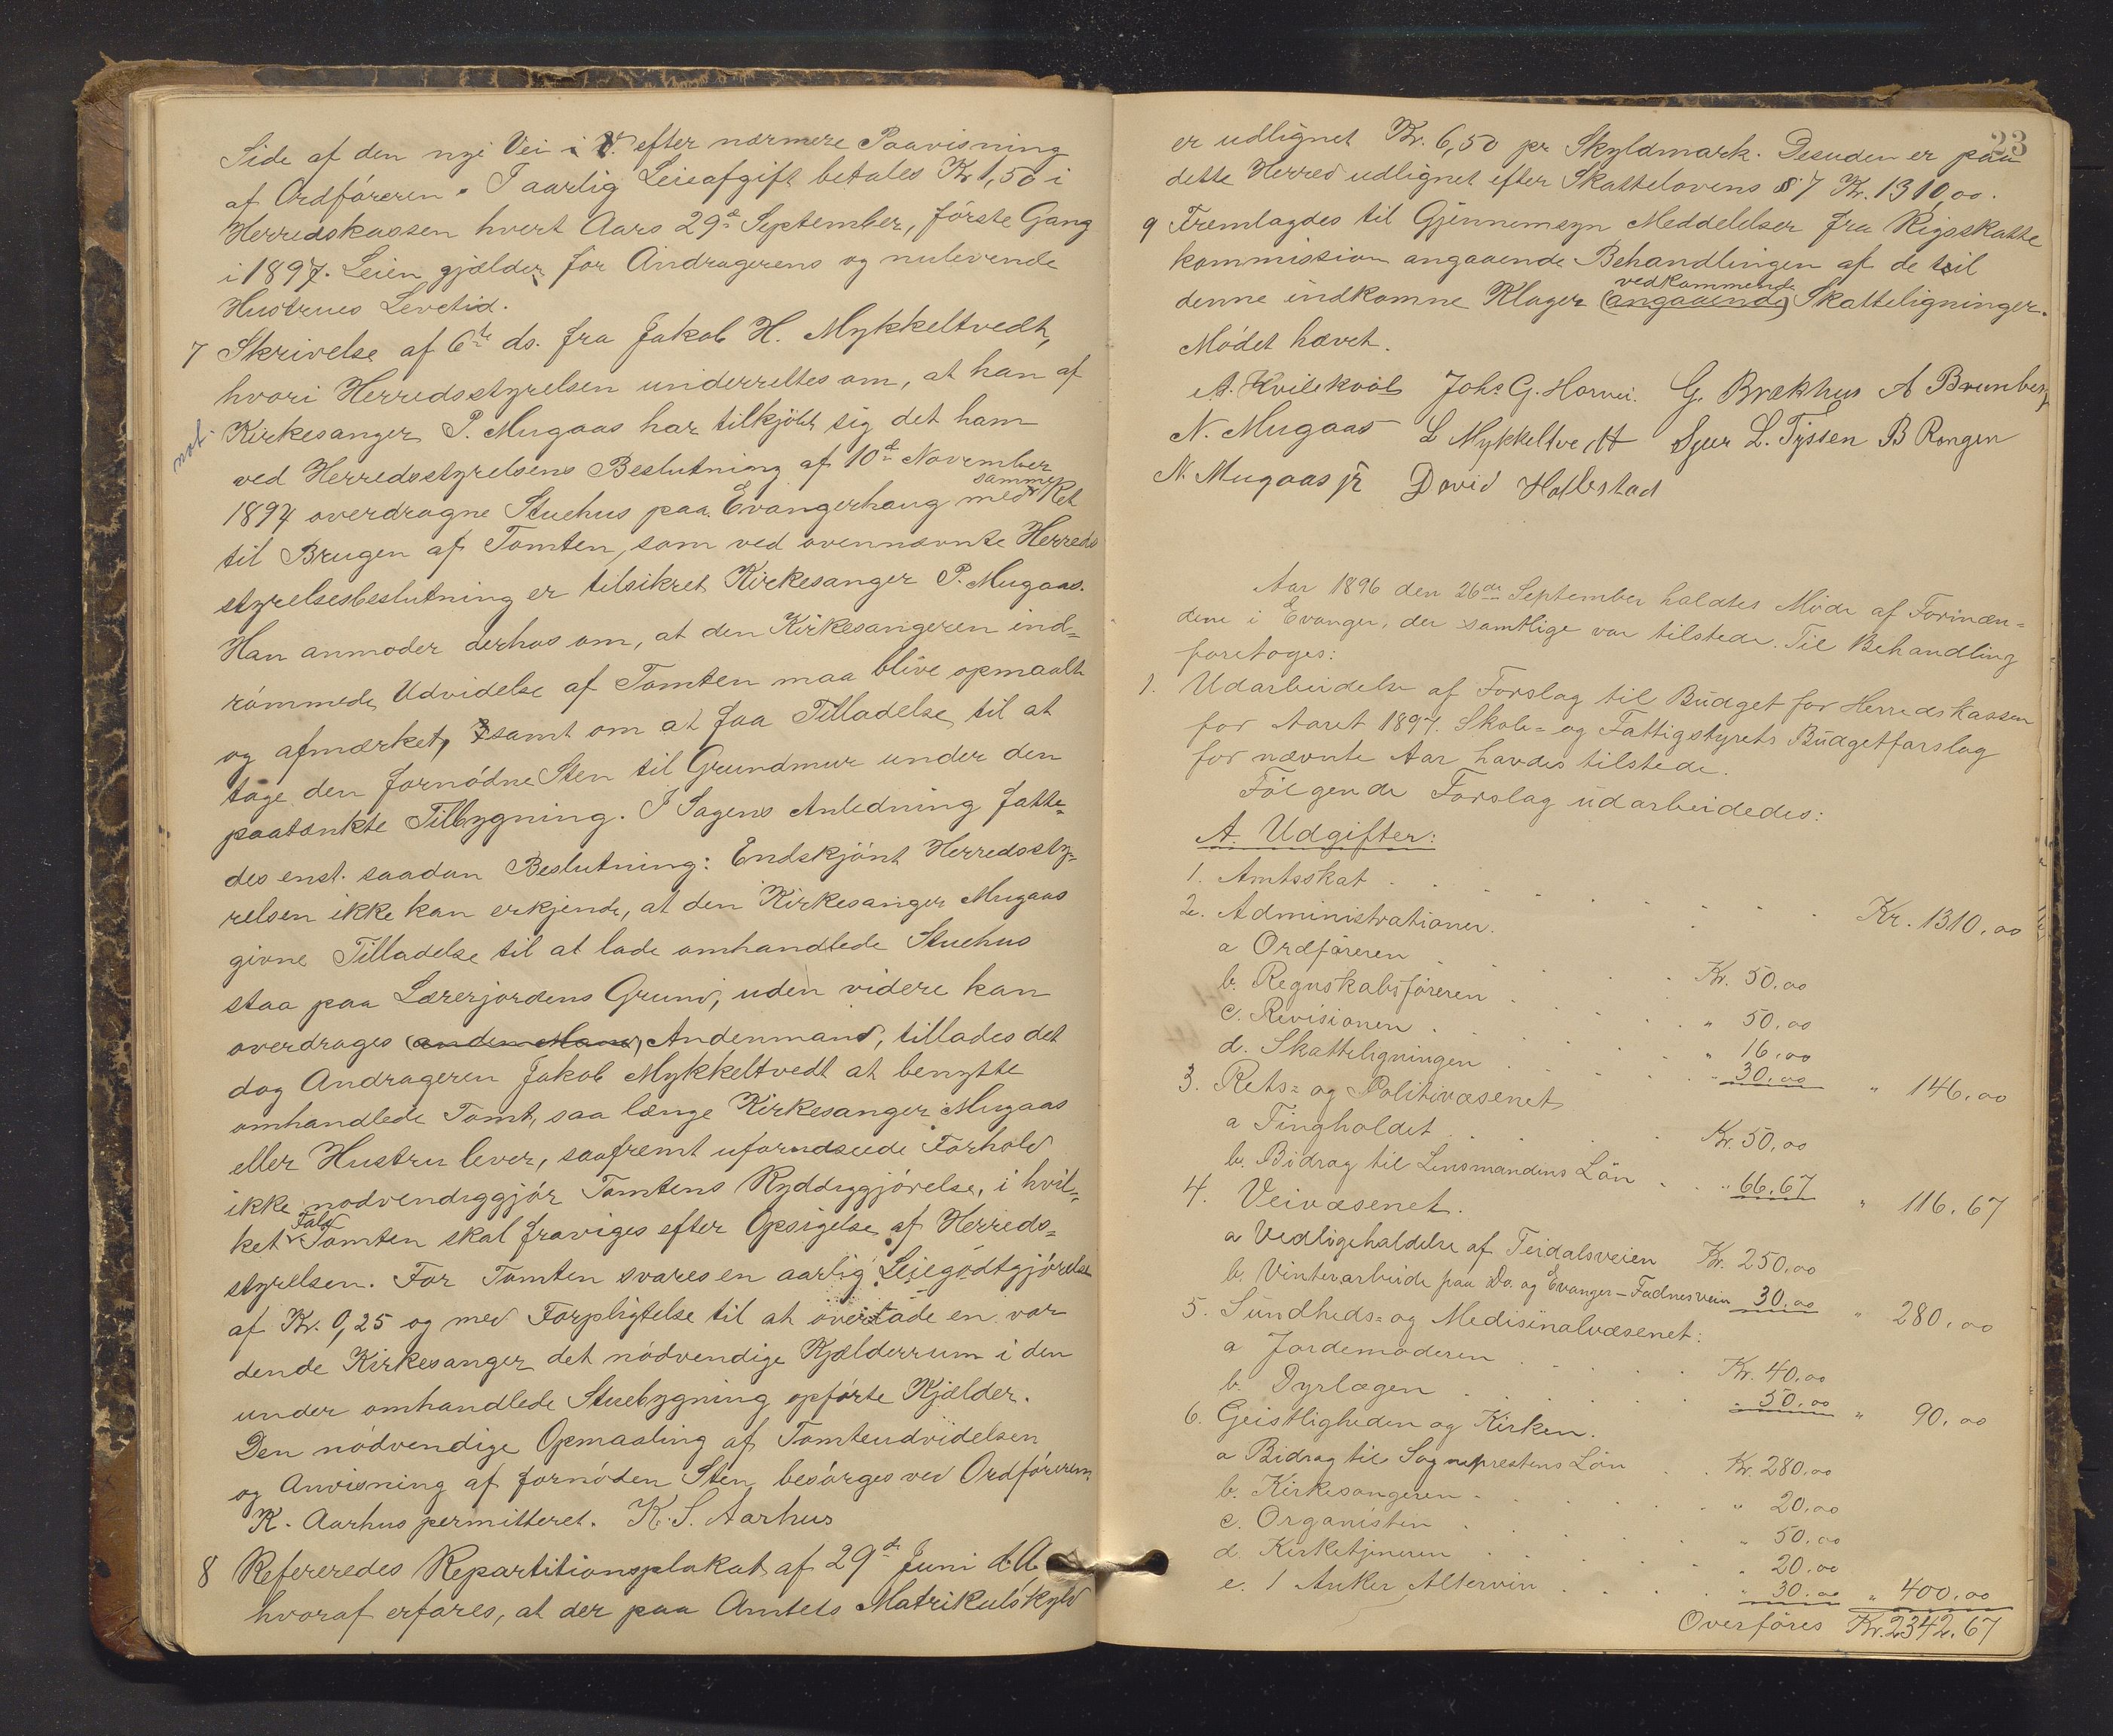 Side af den nye Vei i V. efter nærmere Paavisning
af Ordføreren. I aarlig Leieafgift betales Kr 1,50 i
Herredskassen hvert Aars 29de September, første Gang
i 1897. Leien gjælder for Andragerens og nulevende
Hustrues Levetid.
7 Skrivelse af 6te ds. fra Jakob H. Mykkeltvedt,
hvori Herredsstyrelsen underrettes om, at han af
not.
Kirkesanger P. Mugaas har tilkjøbt sig det ham
ved Herredsstyrelsens Beslutning af 10de November
1894 overdragne Stuehus paa Evangerhaug med samme Ret
til Brugen af Tomten, som ved ovennævnte Herreds
styrelsesbeslutning er tilsikret Kirkesanger P. Mugaas.
Han anmoder derhos om, at den Kirkesangeren ind=
rømmede Udvidelse af Tomten maa blive opmaalt
og afmærket, samt om at faa Tilladelse til at
tage den fornødne Sten til Grundmur under den
paatænkte Tilbygning. I Sagens Anledning fatte=
des enst. saadan Beslutning: Endskjønt Herredssty=
relsen ikke kan erkjende, at den Kirkesanger Mugaas
givne Tilladelse til at lade omhandlede Stuehus
staa paa Lærerjordens Grund, uden videre kan
overdrages (anden Mand) Andenmand, tillades det
dog Andrageren Jakob Mykkeltvedt at benytte
omhandlede Tomt, saa længe Kirkesanger Mugaas
eller Hustru lever, saafremt uforudseede Forhold
ikke nødvendiggjør Tomtens Ryddiggjørelse, i hvil=
ket Fald Tomten skal fraviges efter Opsigelse af Herreds=
styrelsen. For Tomten svares en aarlig Leiegodtgjørelse
af Kr. 0,25 og med Forpligtelse til at overlade en vor
dende Kirkesanger det nødvendige Kjælderrum i den
under omhandlede Stuebygning opførte Kjælder.
Den nødvendige Opmaaling af Tomteudvidelsen
og Anvisning af fornøden Sten besørges ved Ordføreren.
K. Aarhus permitteret. K. S. Aarhus
8 Refereredes Repartitionsplakat af 29de Juni d.A.
hvoraf erfares, at der paa Amtets Matrikulskyld
23
er udlignet Kr. 6,50 pr Skyldmark. Desuden er paa
dette Herred udlignet efter Skattelovens § 7 Kr. 1310,00.
9 Fremlagdes til Gjennemsyn Meddelelser fra Rigsskatte
kommission angaaende Behandlingen af de til
denne indkomne Klager (angaaende) vedkommende Skatteligninger.
Mødet hævet.
A. Kvilekval Johs G. Horvei. G. Brækhus A Brunborg
N. Mugaas L Mykkeltvedt Sjur L. Tyssen B Rongen
N. Mugaas jr David Hallestad
Aar 1896 den 26de September holdtes Møde af Formæn=
dene i Evanger, der samtlige var tilstede. Til Behandling
foretoges:
1. Udarbeidelse af Forslag til Budget for Herredskassen
for Aaret 1897. Skole= og Fattigstyrets Budgetforslag
for nævnte Aar havdes tilstede.
Følgende Forslag udarbeidedes:
A. Udgifter:
1. Amtsskat . . . . . . . Kr. 1310,00
2. Administrationen.
a Ordføreren . . . . . Kr. 50,00
b. Regnskabsføreren . . . . " 50,00
c. Revisionen . . . . . " 16,00
d. Skatteligningen . . . . " 30,00 " 146,00
3. Rets= og Politivæsenet
a Tingholdet . . . . . Kr. 50,00
b. Bidrag til Lensmandens Løn . . " 66,67 " 116,67
4. Veivæsenet.
a Vedligeholdelse af Teidalsveien Kr. 250,00
b. Vinterarbeide paa Do. og Evanger-Fadnesveien 30,00 " 280,00
5. Sundheds= og Medisinalvæsenet:
a Jordemoderen . . . . Kr. 40,00
b. Dyrlægen . . . . . " 50,00 " 90,00
6. Geistligheden og Kirken.
a Bidrag til Sogneprestens Løn . . Kr. 280,00
b. Kirkesangeren . . . . . " 20,00
c. Organisten . . . . . " 50,00
d. Kirketjeneren . . . . . " 20,00
e. 1 Anker Altervin . . . . . " 30,00 " 400,00
Overføres Kr. 2342,67